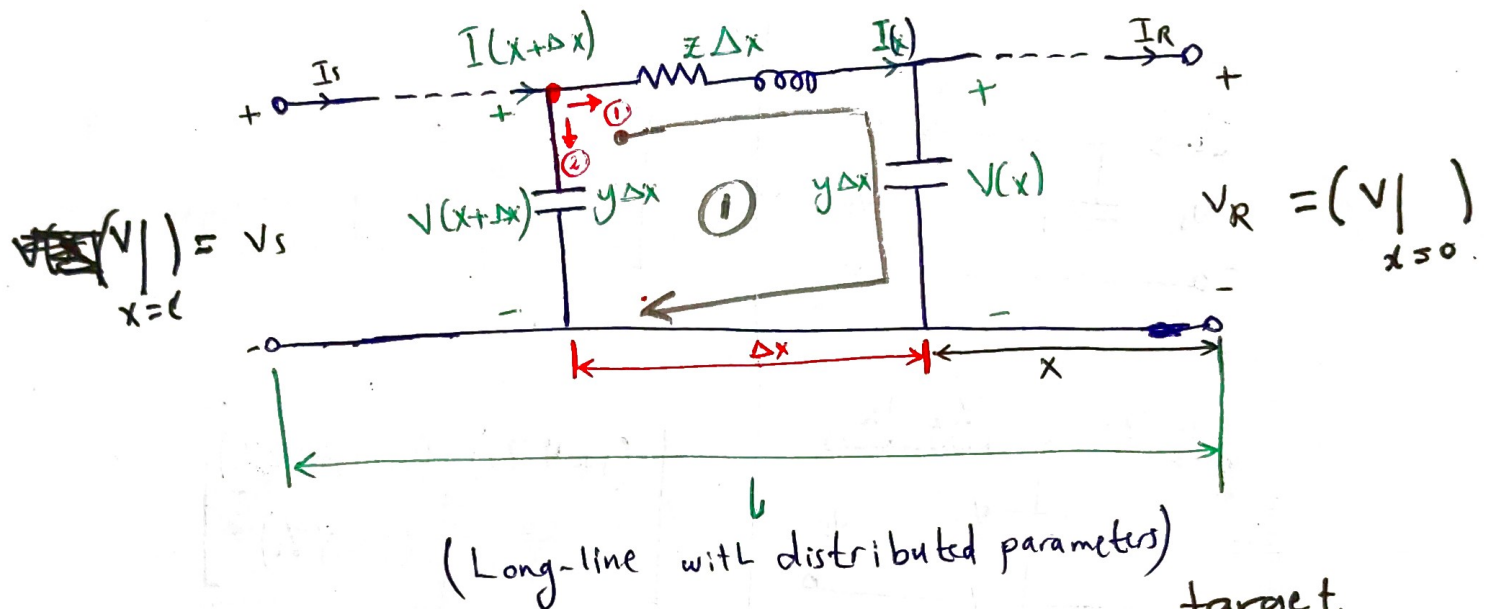 I(x+Δx) zΔx I(x) IR
Is
+ + + +
①
②
V(x+Δx) yΔx ① yΔx V(x)
(V| ) = Vs
x=l
VR = (V| )
x=0.
- - - -
Δx
x
l
(Long-line with distributed parameters)
target